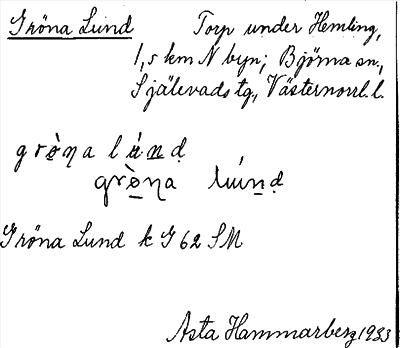 Gröna Lund Torp under Hemling,
1,5 km N byn; Björna sn.,
Själevads tg, Västernorrl. l.
grò̤ŋa lún̲ḍ
grò̲ŋa lún̲ḍ
Gröna Lund k G 62 SM
Asta Hammarberg 1933